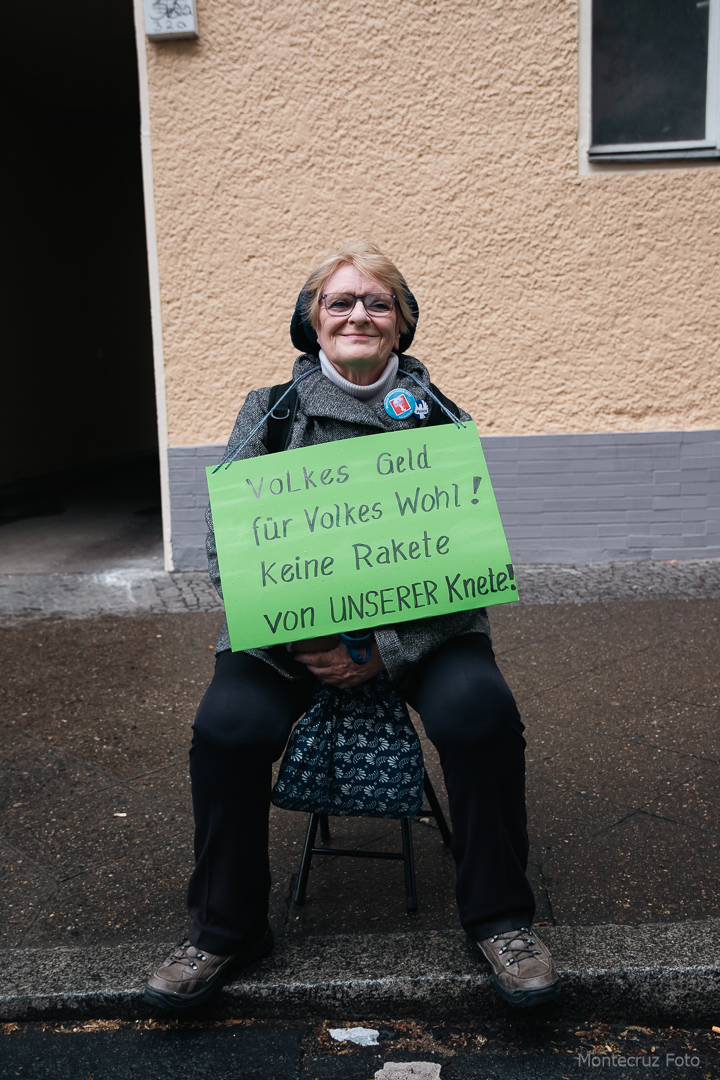 320
Volkes Geld
für Volkes Wohl!
Keine Rakete
von UNSERER Knete!
Montecruz Foto